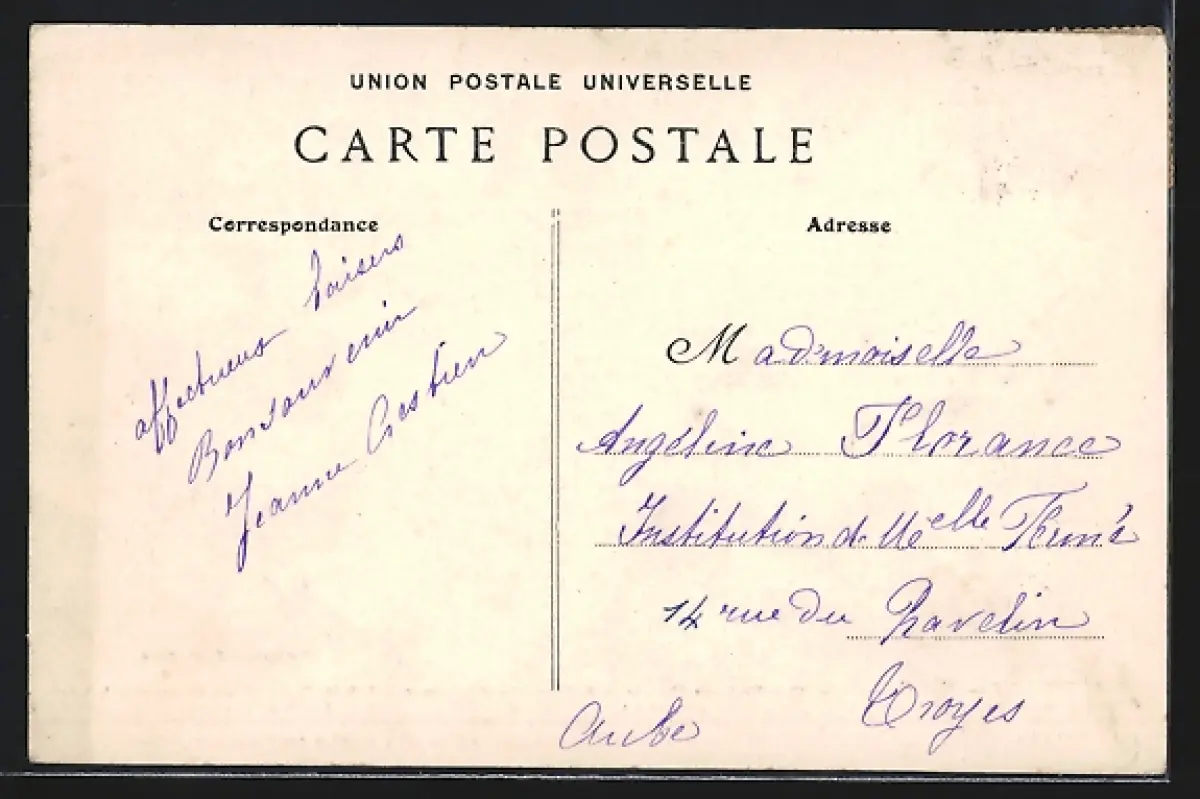 UNION POSTALE UNIVERSELLE
CARTE POSTALE
Correspondance
affectueux baisers
Bonsouvenir
Jeanne Crestien
Adresse
Mademoiselle
Angéline Florance
Institution de Melle
14 rue du Ravelin
Troyes
Aube